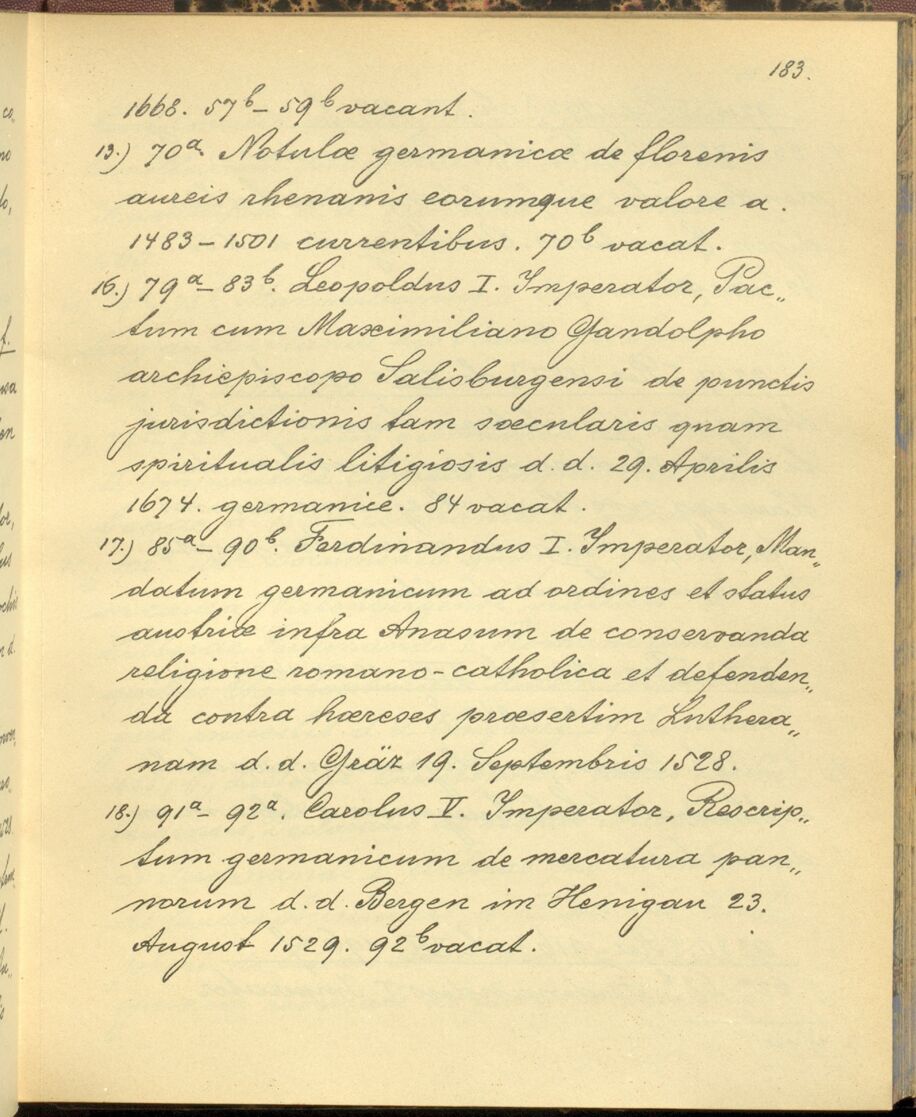 183.
1668. 57b– 59b vacant.
13.) 70a. Notulæ germanicæ de florenis
aureis rhenanis eorumque valore a.
1483–1501 currentibus. 70b vacat.
16.) 79a– 83b. Leopoldus I. Imperator, Pac„
tum cum Maximiliano Gandolpho
archiepiscopo Salisburgensi de punctis
jurisdictionis tam sæcularis quam
spiritualis litigiosis d. d. 29. Aprilis
1674. germanice. 84 vacat.
17.) 85a– 90b. Ferdinandus I. Imperator, Man„
datum germanicum ad ordines et status
austriæ infra Anasum de conservanda
religione romano-catholica et defenden„
da contra hæreses præsertim Luthera„
nam d. d. Gräz 19. Septembris 1528.
18.) 91a– 92a. Carolus V. Imperator, Rescrip„
tum germanicum de mercatura pan„
norum d. d. Bergen im Henigau 23.
August 1529. 92b vacat.